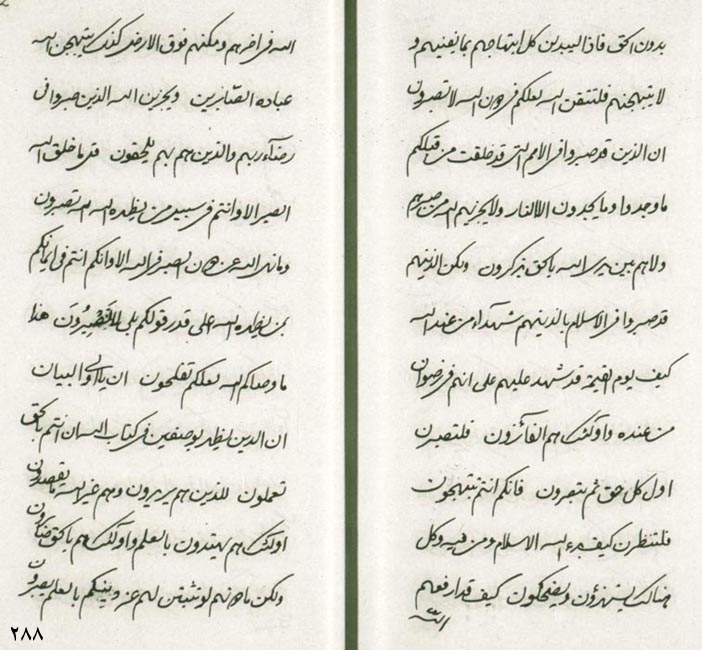 يدرون الحق فاذا ليبدين كل ابتهاجهم بما يفنيهم و
لا يبتهجنهم فلتتقن الله لعلكم في دون الله لا تصبرون
ان الذين قد صبروا في الامم التي قد خلقت من قبلكم
ما وجدوا وما يجدون الا النار ولا يجزيهم الله من صبرهم
ولا هم بين يدي الله بالحق يذكرون ولكن الذينهم
قد صبروا في الاسلام بالذينهم شهداء من عند الله
كيف يوم القيمة قد شهد عليهم على انهم في رضوان
من عنده واولئك هم الفائزون فلتصبرن
اول كل حق ثم تبصرون فانكم انتم تبتهجون
فلتنظرن كيف بدء الله الاسلام ومن فيه وكل
هنالك يستهزؤن ويضحكون كيف قد ارفعهم
الله
الله في اخرهم ومكنهم فوق الارض كذلك يبتهجن الله
عباده الصابرين ويجزين الله الذين صبروا في
رضاء ربهم والذين هم بهم يلحقون قل ما خلق الله
الصبر الا وانتم في سبيل من يظهره الله تصبرون
وما نهى الله عن دون الصبر في الله الا وانكم انتم في ايمانكم
بمن يظهره الله على قدر قولكم بلى لا تصبرون هذا
ما وصاكم الله لعلكم تفلحون ان يا اولى البيان
ان الذين يظهر بوصفين في كتاب الله ان انتم بالحق
تعملون للذين هم يريدون وهم غير الله ما يقصدون
اولئك هم يهتدون بالعلم واولئك هم بالحق
ولكن ما دونهم لو تثبتن لهم عز دينكم بالعلم يصبرون
٢٨٨